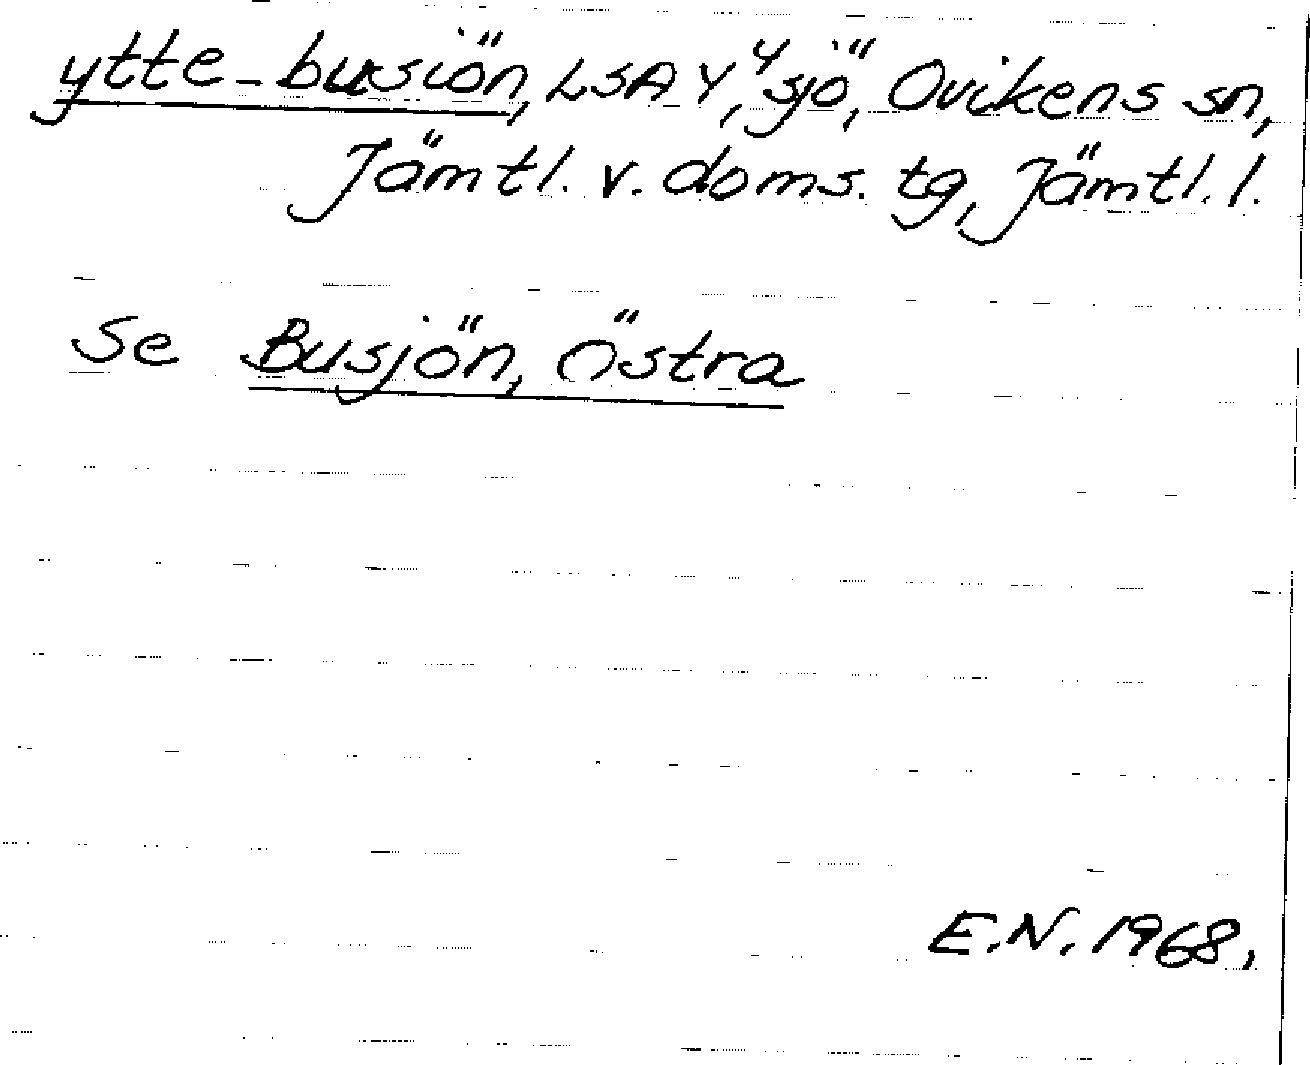 ytte-busiön, LSA Y, "sjö", Ovikens sn,
Jämtl. v. doms. tg, Jämtl. l.
Se Busjön, Östra
E.N. 1968,